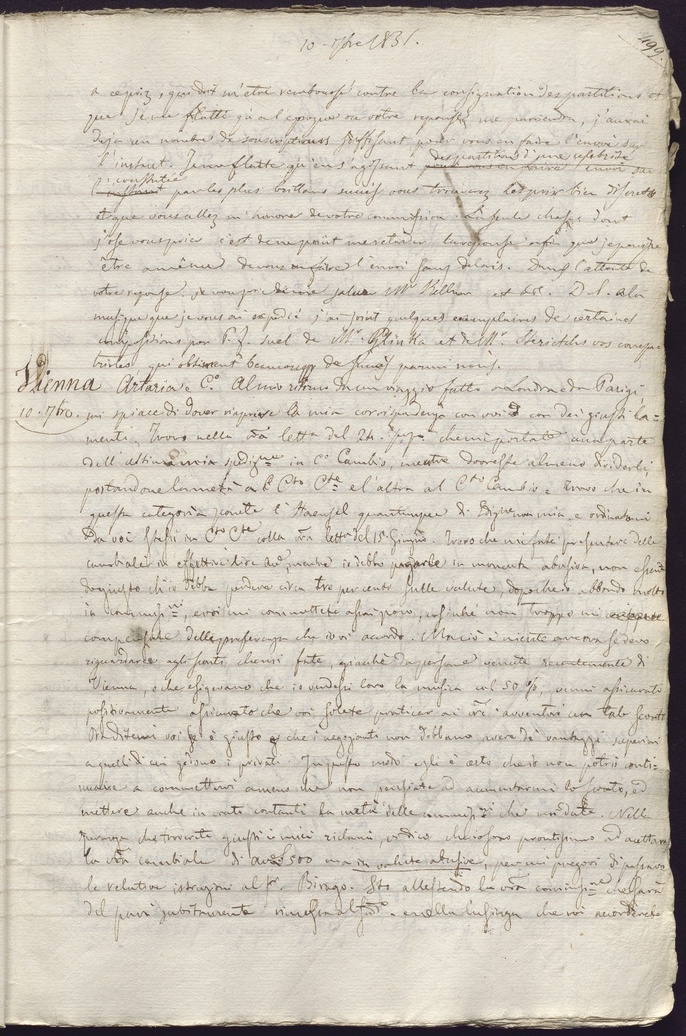 10 - 7bre 1831.
499
a ce prix, qui doit m'être remboursé contre la consignation des partitions et
que je me flatte qu'à l'époque où votre reponse me parviendra, j'aurai
deja un nombre de souscriptions suffisant pour vous en faire l'envoi sur
l'instant. Je me flatte qu'en s'agissant des partitions d'une celebrité
constatée par les plus brillans succès vous trouverez les prix bien discrets
et que vous allez m'honorer de votre commission. La seule chose dont
j'ose vous prier c'est de ne point me retarder la reponse afin que je puisse
être a même de vous en faire l'envoi sans delais. Dans l'attente de
votre reponse je vous prie de me saluer Mr. Bellion et D. S. a la
musique que je vous ai expedié j'ai joint quelques exemplaires de certaines
compositions pour P. F. seul de Mr. Glinka et de Mr. Sterichs vos compa-
triotes qui obtinrent beaucoup de succès parmi nous.
Vienna Artaria e C.o Al mio ritorno da un viaggio fatto a Londra e da Parigi
10. 7bre. mi spiace di dover riaprire la mia corrispondenza con voi con dei giusti la=
menti. Trovo nella vra letta del 24 che mi portate una parte
dell'ultima mia spedizne in Cto Cambio, mentre dovreste almeno dividerli,
portandone la metà a C Cto Cte e l'altra al Cto Cambio. Trovo che in
questa categoria ponete l'Haensel quantunque di Edizne mia e ordinatami
da voi stessi in Cto Cte colla vra letta del 15 Giugno. Trovo che mi fate presentare delle
cambiali in effettive lire aue mentre io debbo pagarle in moneta abusiva, non essendo
giusto ch'io debba perdere circa tre per cento sulle valute, dopochè abbondo molto
in commisni, e voi mi commettete assai poco, cosichè non troppo mi
compensate delle preferenze che io vi accordo. Ma ciò è niente ancora se devo
riguardare agli sconti che mi fate, giacchè da persone venute recentemente di
Vienna, e che esigevano che io vendessi loro la musica col 50 %, venni assicurato
positivamente che voi solete praticar ai vri avventori un tale sconto.
Ora ditemi voi se è giusto che i negozianti non debbano avere de' vantaggi superiori
a quelli di cui godono i privati. In questo modo egli è certo che io non potrò conti=
nuare a commettervi a meno che non pensiate ad aumentarmi lo sconto, ed
mettere anche in conto contanti la metà delle commisni che mi date. Nella
lusinga che troverete giusti i miei riclami, vi dico che io sono prontissimo ad accettare
la vra cambiale di aue £ 500 ma in valuta abusiva, per cui pregovi di passare
le relative istruzioni al Sr. Birago. Sto allestendo la vra commisne che sarà
del pari subitamente rimessa al sudo. e nella lusinga che voi accorderete